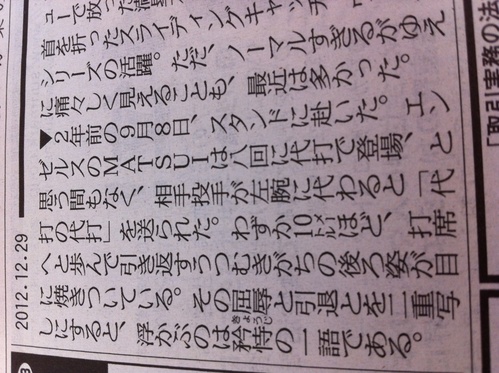 ューで放った満塁
首を折ったスライディングキャッチ
シリーズの活躍。ただ、ノーマルすぎるがゆえ
に痛々しく見えることも、最近は多かった。
▼2年前の9月8日、スタンドに赴いた。エン
ゼルスのMATSUIは八回に代打で登場、と
思う間もなく、相手投手が左腕に代わると「代
打の代打」を送られた。わずか10㍍ほど、打席
へと歩んで引き返すうつむきがちの後ろ姿が目
に焼きついている。その屈辱と引退とを二重写
きょうじ
しにすると、浮かぶのは矜恃の一語である。
2012.12.29
「取引実務の法